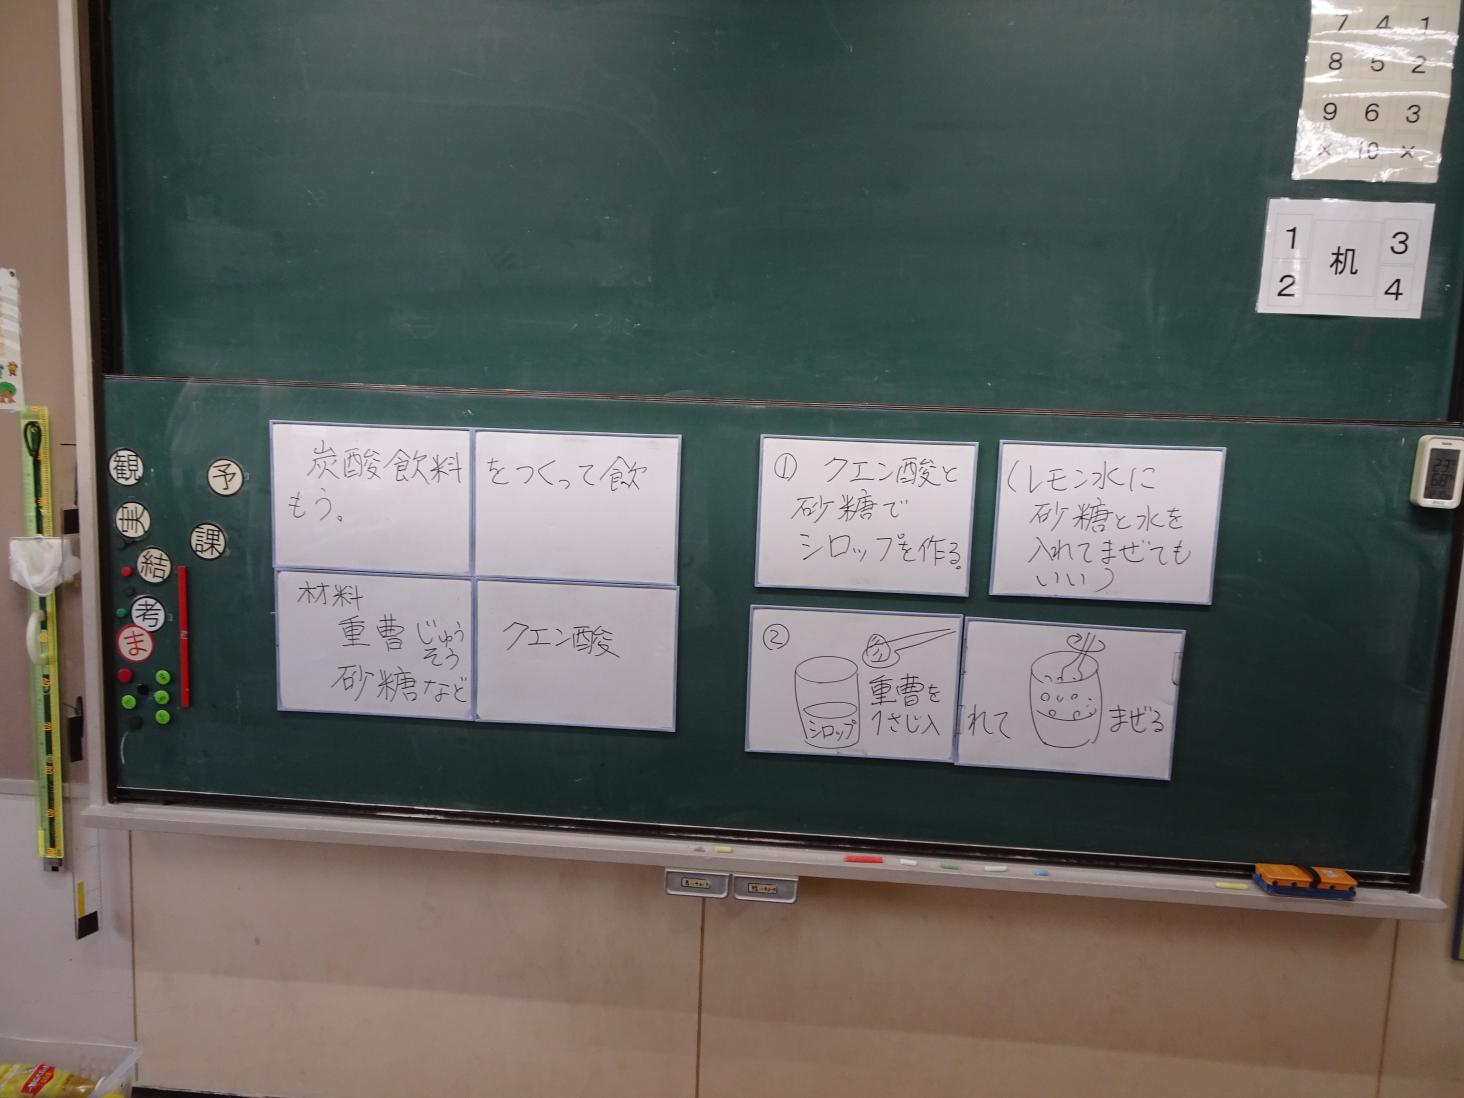 7 4 1
8 5 2
9 6 3
× 10 ×
1 机 3
2 4
観 予
実
課
結
考
ま
炭酸飲料をつくって飲
もう。
材料
重曹 じゅう
そう
砂糖など
クエン酸
① クエン酸と
砂糖で
シロップを作る。
(レモン水に
砂糖と水を
入れてまぜても
いい)
②
シロップ
重曹を
1さじ入れて
まぜる